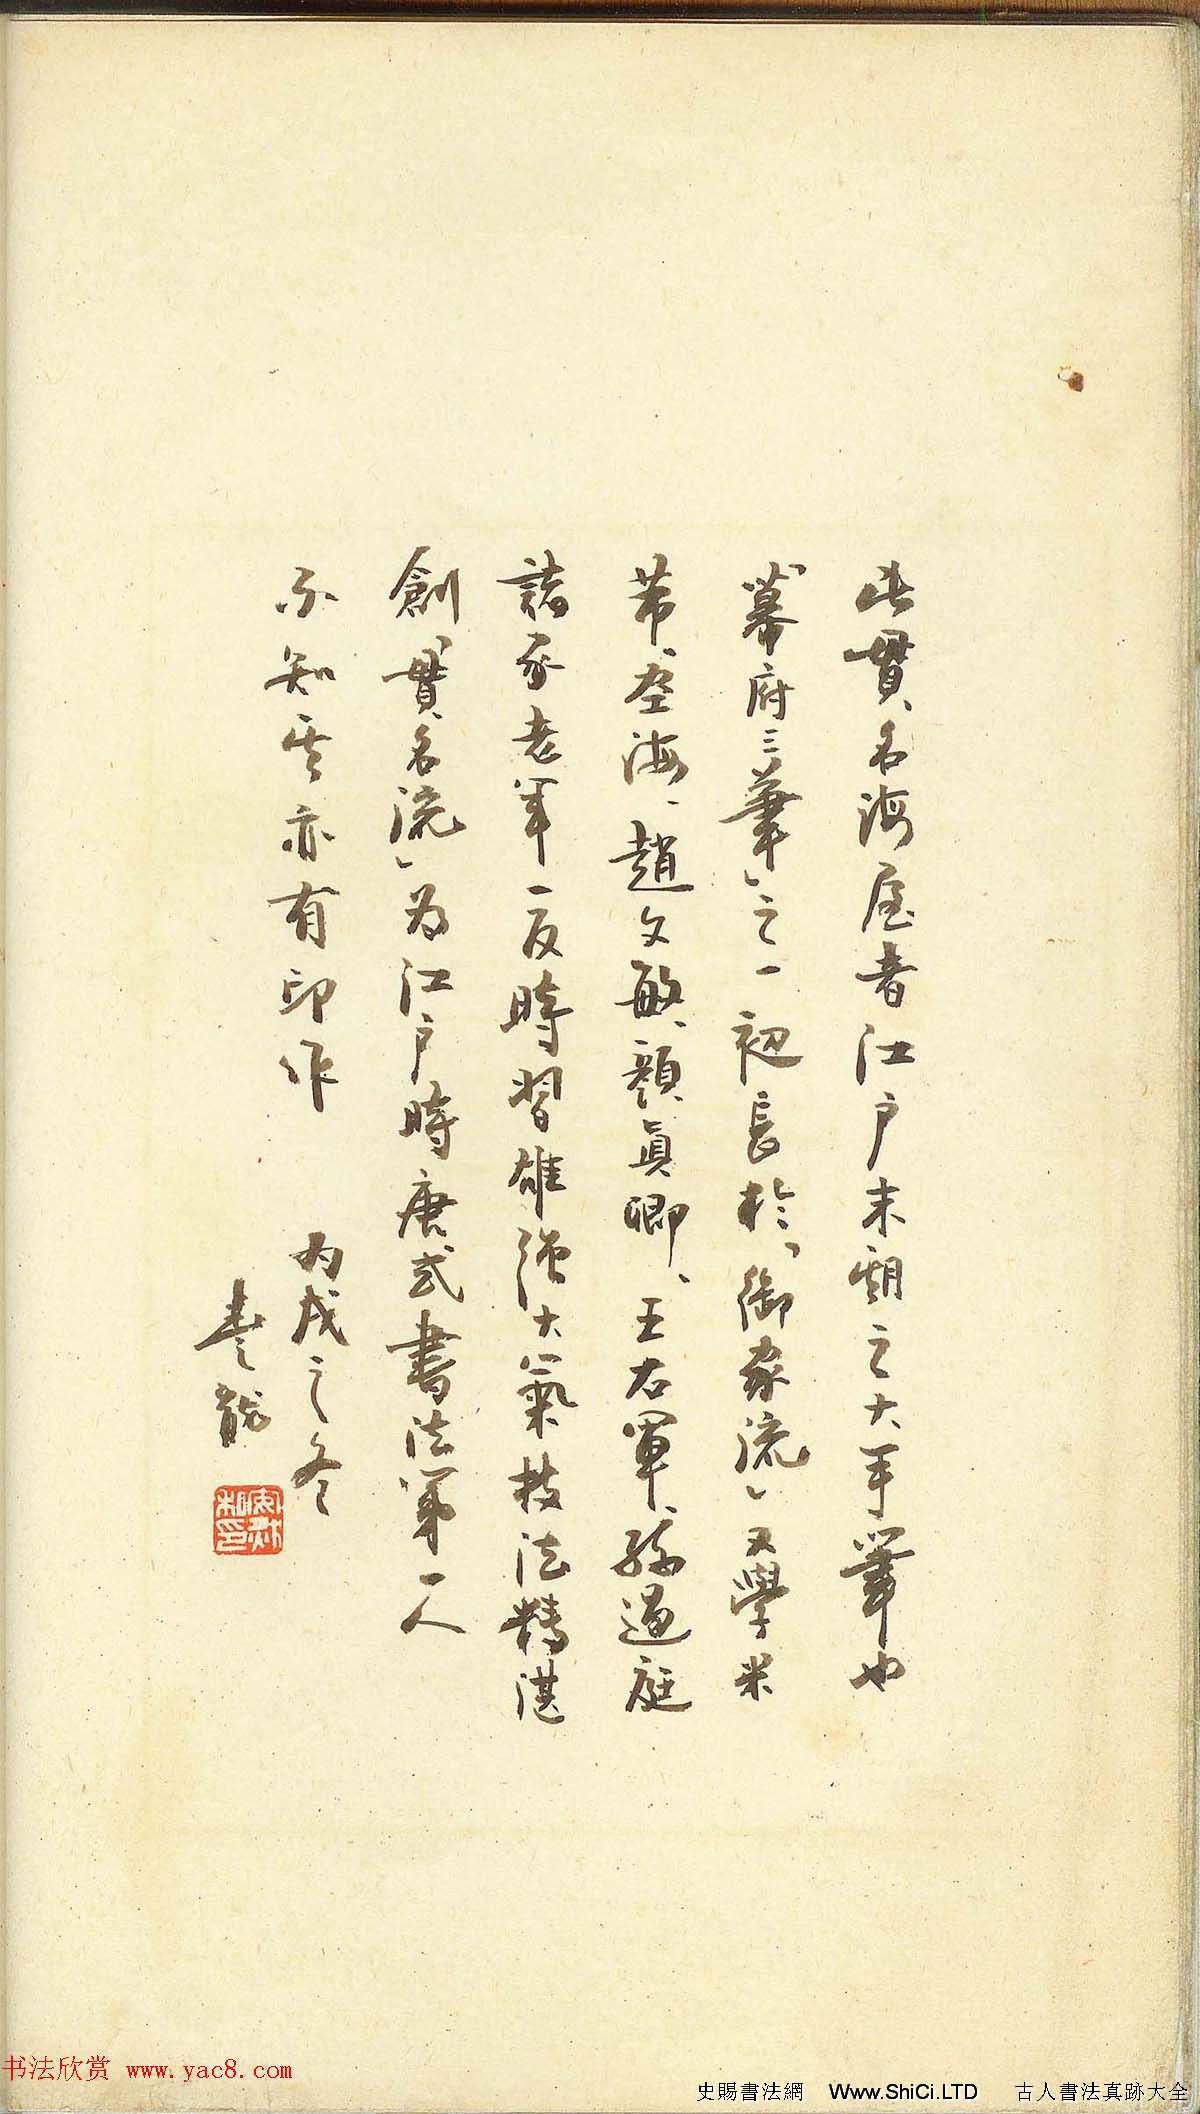 此貫名海屋者江戶末期之大手筆也
「幕府三筆」之一初長於「御家流」又學米
芾、空海、趙文敏、顏真卿、王右軍、孫過庭
諸家老年一反時習雄強大氣技法精湛
創「貫名流」為江戶時唐式書法第一人
不知其亦有印作
丙戌之冬
书法欣赏 www.yac8.com
史賜書法網 Www.ShiCi.LTD 古人書法真跡大全